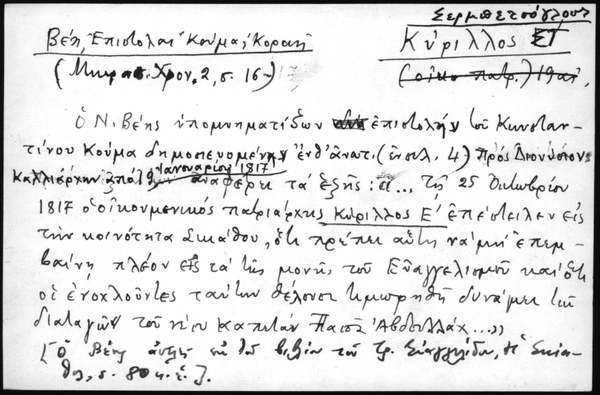 Σερμπετσόγλους
Βέη, Ἐπιστολαὶ Κούμα, Κοραῆ
Κύριλλος ΣΤ
(Μικρασ. Χρον. 2, σ. 16-17)
(οἰκ. πατρ.) 19 αἰ.
Ὁ Ν. Βέης ὑπομνηματίζων ἐπιστολὴν τοῦ Κωνσταν-
τίνου Κούμα δημοσιευομένην ἐνθ' ἀνωτ. (ἐπιστ. 4) πρὸς Διονύσιον
Καλλιάρχην ἀπὸ 19 Ἰανουαρίου 1817 ἀναφέρει τὰ ἑξῆς: «... τῇ 25 Ὀκτωβρίου
1817 ὁ οἰκουμενικὸς πατριάρχης Κύριλλος Ε' ἐπέστειλεν εἰς
τὴν κοινότητα Σκιάθου, ὅτι πρέπει αὕτη νὰ μὴ ἐπεμ-
βαίνῃ πλέον εἰς τὰ τῆς μονῆς τοῦ Εὐαγγελισμοῦ καὶ ὅτι
οἱ ἐνοχλοῦντες ταύτην θέλουσι τιμωρηθῆ δυνάμει τῶν
διαταγῶν τοῦ νέου Καπετὰν Πασᾶ Ἀβδουλλάχ...»
[Ὁ Βέης ἀντλεῖ ἐκ τοῦ βιβλίου τοῦ Τρ. Εὐαγγελίδου, Ἡ Σκία-
θος, σ. 80 κ.ἑ.].